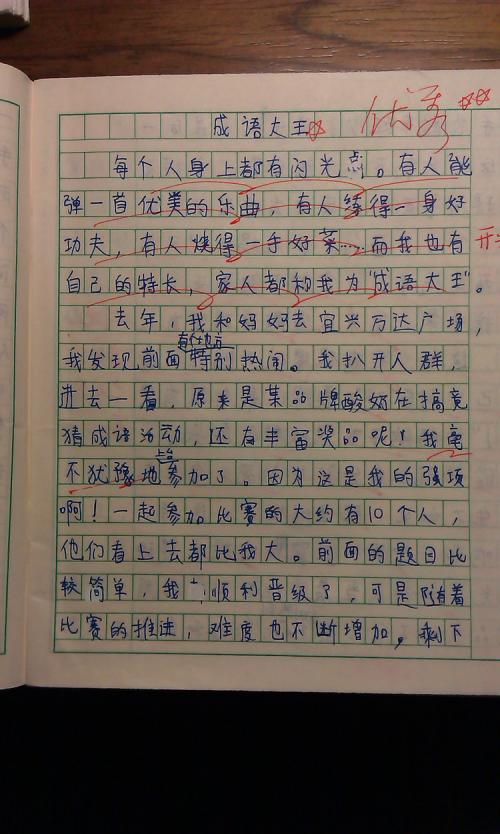 成语大王
优秀
每个人身上都有闪光点。有人能
弹一首优美的乐曲，有人练得一身好
功夫，有人烧得一手好菜……而我也有
自己的特长，家人都和我为“成语大王”。
去年，我和妈妈去宜兴万达广场，
有个地方
我发现前面特别热闹。我扒开人群，
进去一看，原来是某品牌酸奶在搞竞
猜成语活动，还有丰富奖品呢！我毫
不犹豫地参加了。因为这是我的强项
啊！一起参加比赛的大约有10个人，
他们看上去都比我大。前面的题目比
较简单，我顺利晋级了，可是随着
比赛的推进，难度也不断增加。剩下